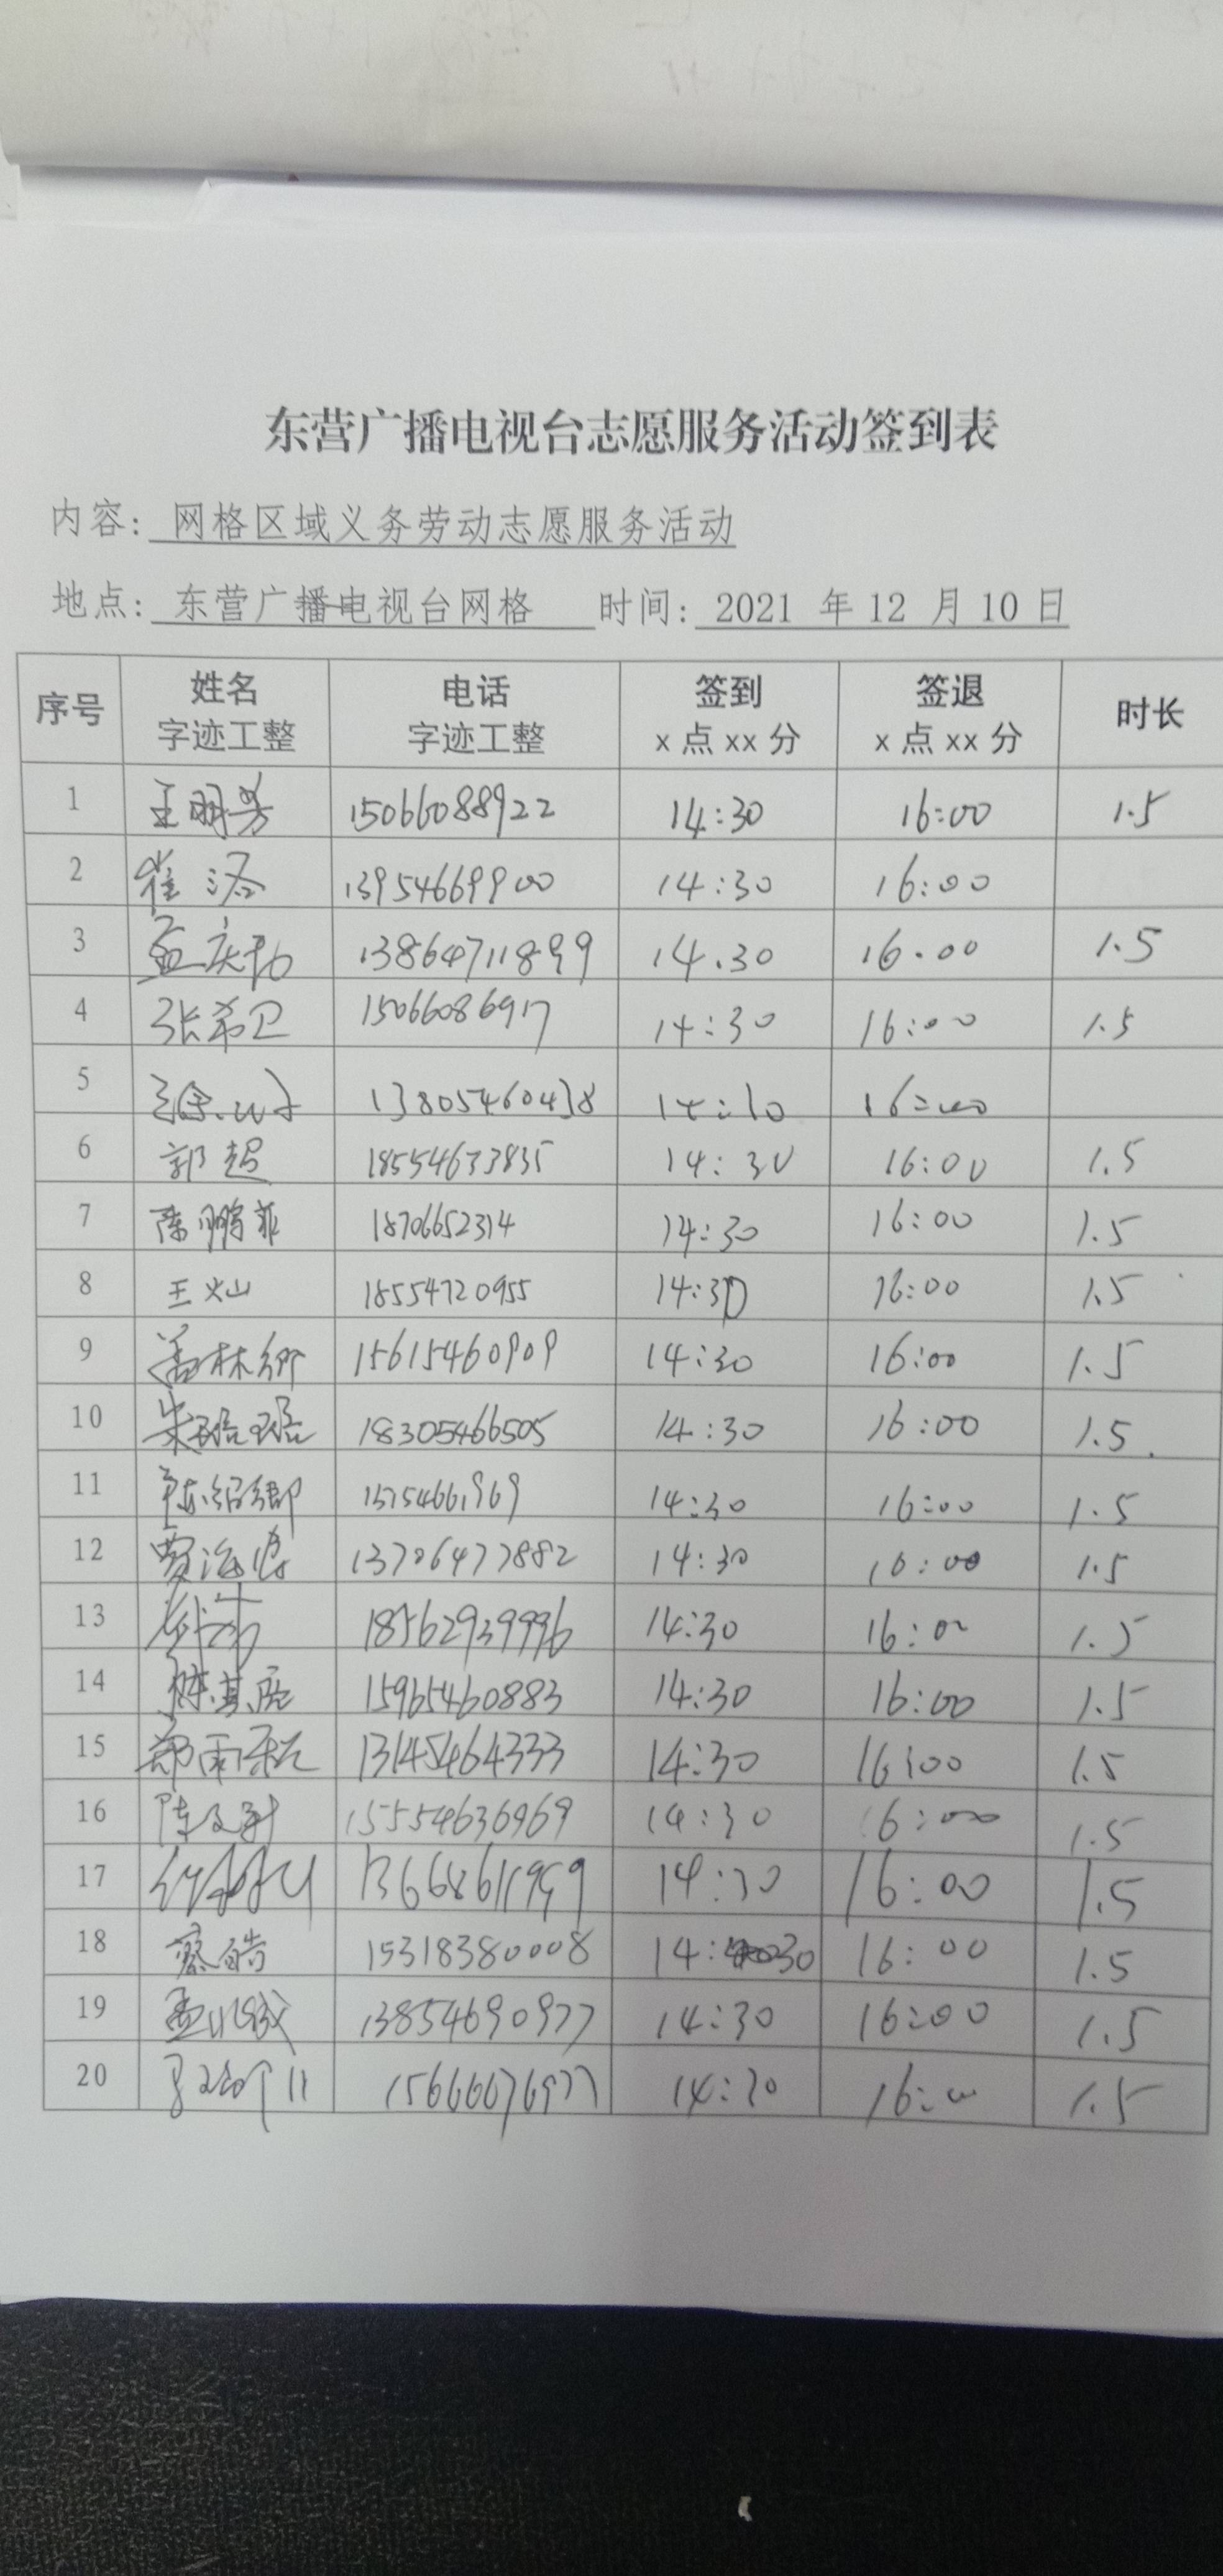 东营广播电视台志愿服务活动签到表
内容: 网格区域义务劳动志愿服务活动
地点: 东营广播电视台网格 时间: 2021 年 12 月 10 日
序号 姓名 电话 签到 签退 时长
字迹工整 字迹工整 x 点 xx 分 x 点 xx 分
1 王明芳 15066088922 14:30 16:00 1.5
2 崔 13954669900 14:30 16:00
3 孟庆 13864711899 14.30 16.00 1.5
4 张希卫 15066086917 14:30 16:00 1.5
5 13805460438 16:00
6 郭超 18554633835 14:30 16:00 1.5
7 陈鹏菲 18706652314 14:30 16:00 1.5
8 王灿 18554720955 14:30 16:00 1.5
9 林卿 15615460909 14:30 16:00 1.5
10 朱琀琀 18305466505 14:30 16:00 1.5
11 14:30 16:00 1.5
12 贾海 13706477882 14:30 16:00 1.5
13 18562939996 14:30 16:00 1.5
14 陈其 15965460883 14:30 16:00 1.5
15 郑雨 13145464333 14:30 16:00 1.5
16 陈文 15554636969 14:30 16:00 1.5
17 14:30 16:00 1.5
18 蔡皓 15318380008 14:30 16:00 1.5
19 孟 13854690977 14:30 16:00 1.5
20 15666676977 14:30 16:00 1.5